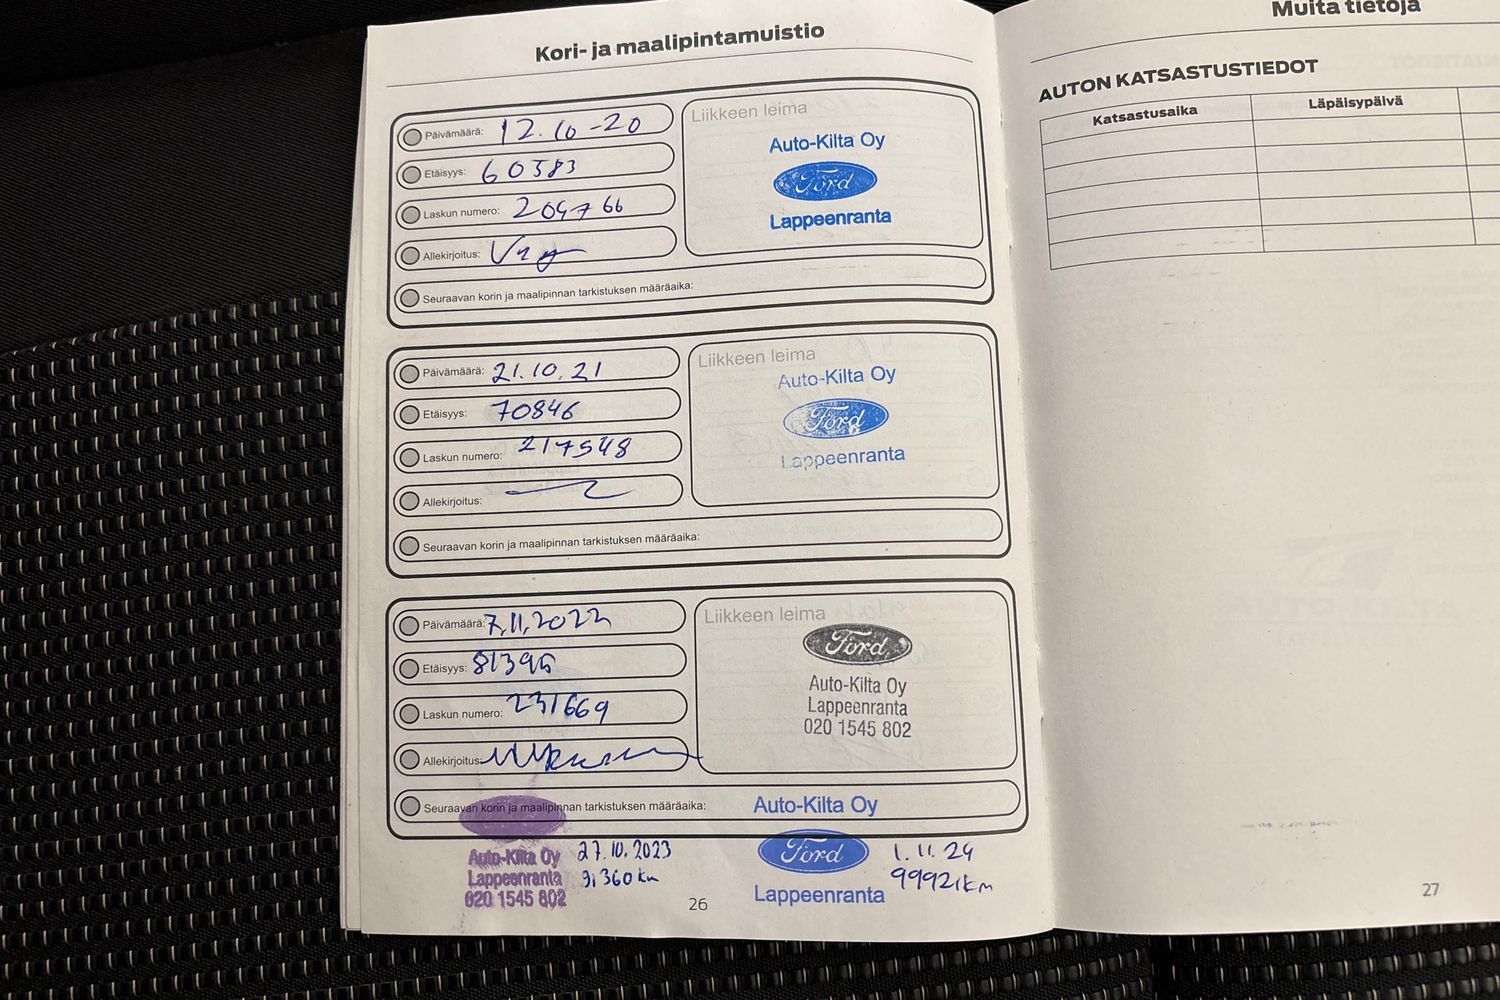 Kori- ja maalipintamuistio
Päivämäärä: 12.10-20
Etäisyys: 60383
Laskun numero: 204766
Allekirjoitus:
Seuraavan korin ja maalipinnan tarkistuksen määräaika:
Liikkeen leima
Auto-Kilta Oy
Ford
Lappeenranta
Päivämäärä: 21.10.21
Etäisyys: 70846
Laskun numero: 217548
Allekirjoitus:
Seuraavan korin ja maalipinnan tarkistuksen määräaika:
Liikkeen leima
Auto-Kilta Oy
Ford
Lappeenranta
Päivämäärä: 7.11.2022
Etäisyys: 81395
Laskun numero: 231669
Allekirjoitus:
Seuraavan korin ja maalipinnan tarkistuksen määräaika:
Liikkeen leima
Ford
Auto-Kilta Oy
Lappeenranta
020 1545 802
Auto-Kilta Oy
Lappeenranta
020 1545 802
27.10.2023
91360km
Auto-Kilta Oy
Ford
Lappeenranta
1.11.24
99921km
26
Muita tietoja
AUTON KATSASTUSTIEDOT
Katsastusaika
Läpäisypäivä
27